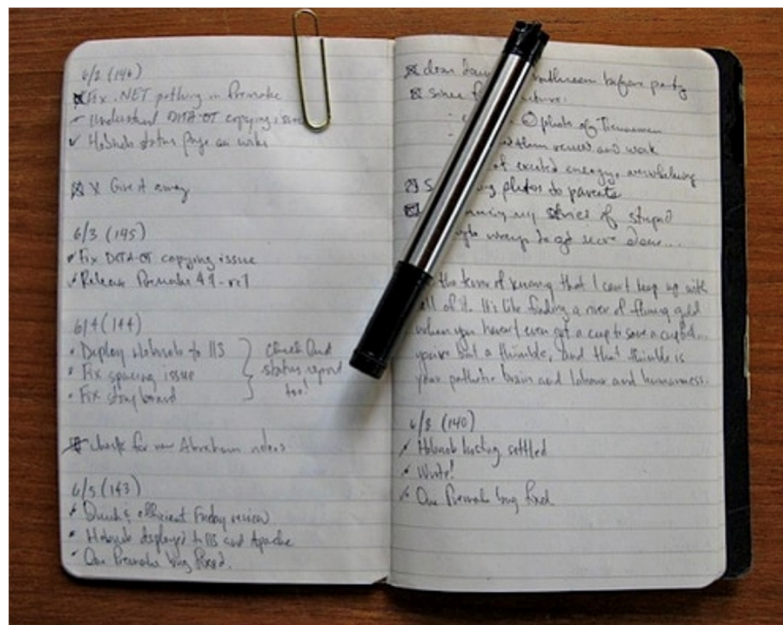 6/2 (146)
Fix .NET pathing in Premake
Understand DITA-OT copying issue
Hobnob status page on wiki
X Give it away
6/3 (145)
Fix DITA-OT copying issue
Release Premake 4.1-rc1
6/4 (144)
Deploy Hobnob to IIS
Fix spacing issue
Fix storyboard
Check and
status report
too!
Check for new Abraham videos
6/5 (143)
Quick & efficient Friday review
Hobnob deployed to IIS and Apache
One Premake bug fixed.
clean bathroom before party
photo of
and work
of excited energy, overwhelming
photos to parents
my series of stupid
ways to get more done...
the terror of knowing that I can't keep up with
all of it. It's like finding a river of flowing gold
when you haven't even got a cup to save a cupful...
you've but a thimble, and that thimble is
your pathetic brain and labour and humanness.
6/8 (140)
Hobnob hosting settled
Wrote!
One Premake bug fixed